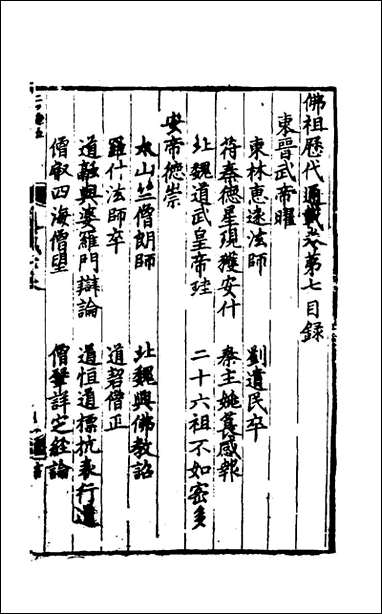 佛祖歷代通載卷第七目録
東晉武帝曜
東林惠遠法師 劉遺民卒
符秦德星現獲安什 秦主姚萇感報
北魏道武皇帝珪 二十六祖不如密多
安帝德宗
太山竺僧朗師 北魏興佛教詔
羅什法師卒 道䂮僧正
道融與婆羅門辯論 道恒道標抗表行遁
僧叡四海僧望 僧肇詳定經論